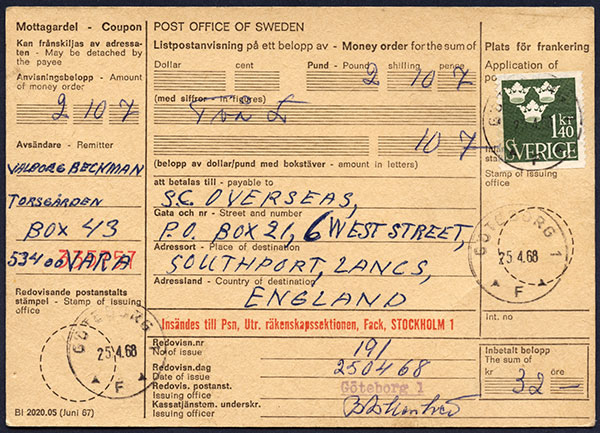 Mottagardel - Coupon
Kan frånskiljas av adressaten - May be detached by the payee
Anvisningsbelopp - Amount of money order
2 10 7
Avsändare - Remitter
VALBORG BECKMAN
TORSGÅRDEN
BOX 43
53400 VARA
Redovisande postanstalts stämpel - Stamp of issuing office
GÖTEBORG 1
25.4.68
F
BI 2020.05 (Juni 67)
POST OFFICE OF SWEDEN
Listpostanvisning på ett belopp av - Money order for the sum of
Dollar cent Pund - Pound shilling pence
2 10 7
(med siffror - in figures)
Två £
10 7
(belopp av dollar/pund med bokstäver - amount in letters)
att betalas till - payable to
S.C. OVERSEAS,
Gata och nr - Street and number
P.O. BOX 21, 6 WEST STREET,
Adressort - Place of destination
SOUTHPORT, LANCS,
Adressland - Country of destination
ENGLAND
Insändes till Psn, Utr. räkenskapssektionen, Fack, STOCKHOLM 1
Redovisn.nr
No of issue
191
Redovisn.dag
Date of issue
250468
Redovis. postanst.
Issuing office
Göteborg 1
Kassatjänstem. underskr.
Issuing officer
Plats för frankering
Application of
1 kr 40
SVERIGE
Stamp of issuing office
GÖTEBORG 1
25.4.68
F
Int. no
Inbetalt belopp
The sum of
kr öre
32 -